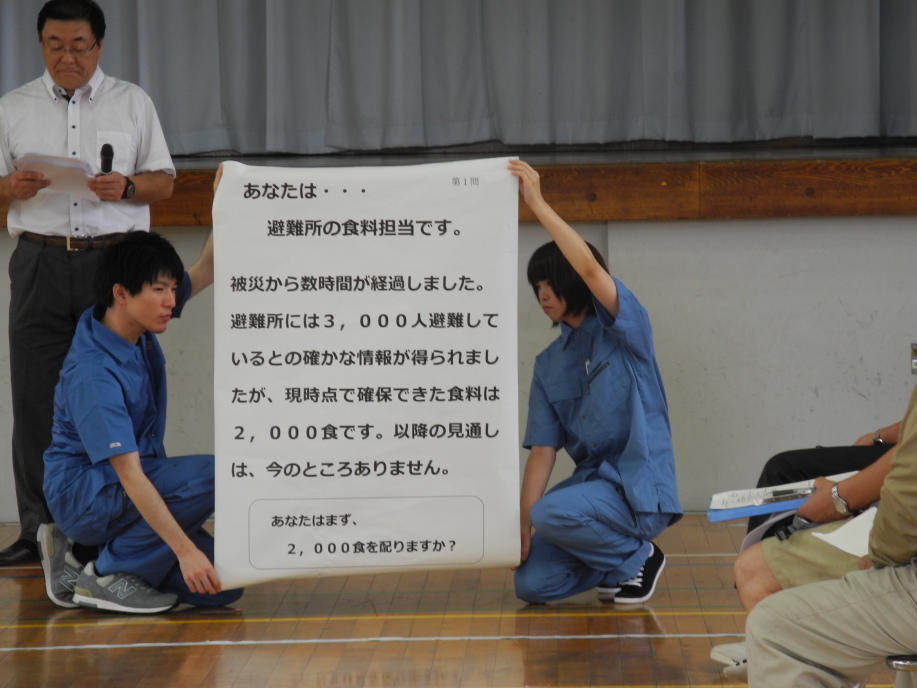 第1問
あなたは・・・
避難所の食料担当です。
被災から数時間が経過しました。
避難所には3，000人避難して
いるとの確かな情報が得られまし
たが、現時点で確保できた食料は
2，000食です。以降の見通し
は、今のところありません。
あなたはまず、
2，000食を配りますか？